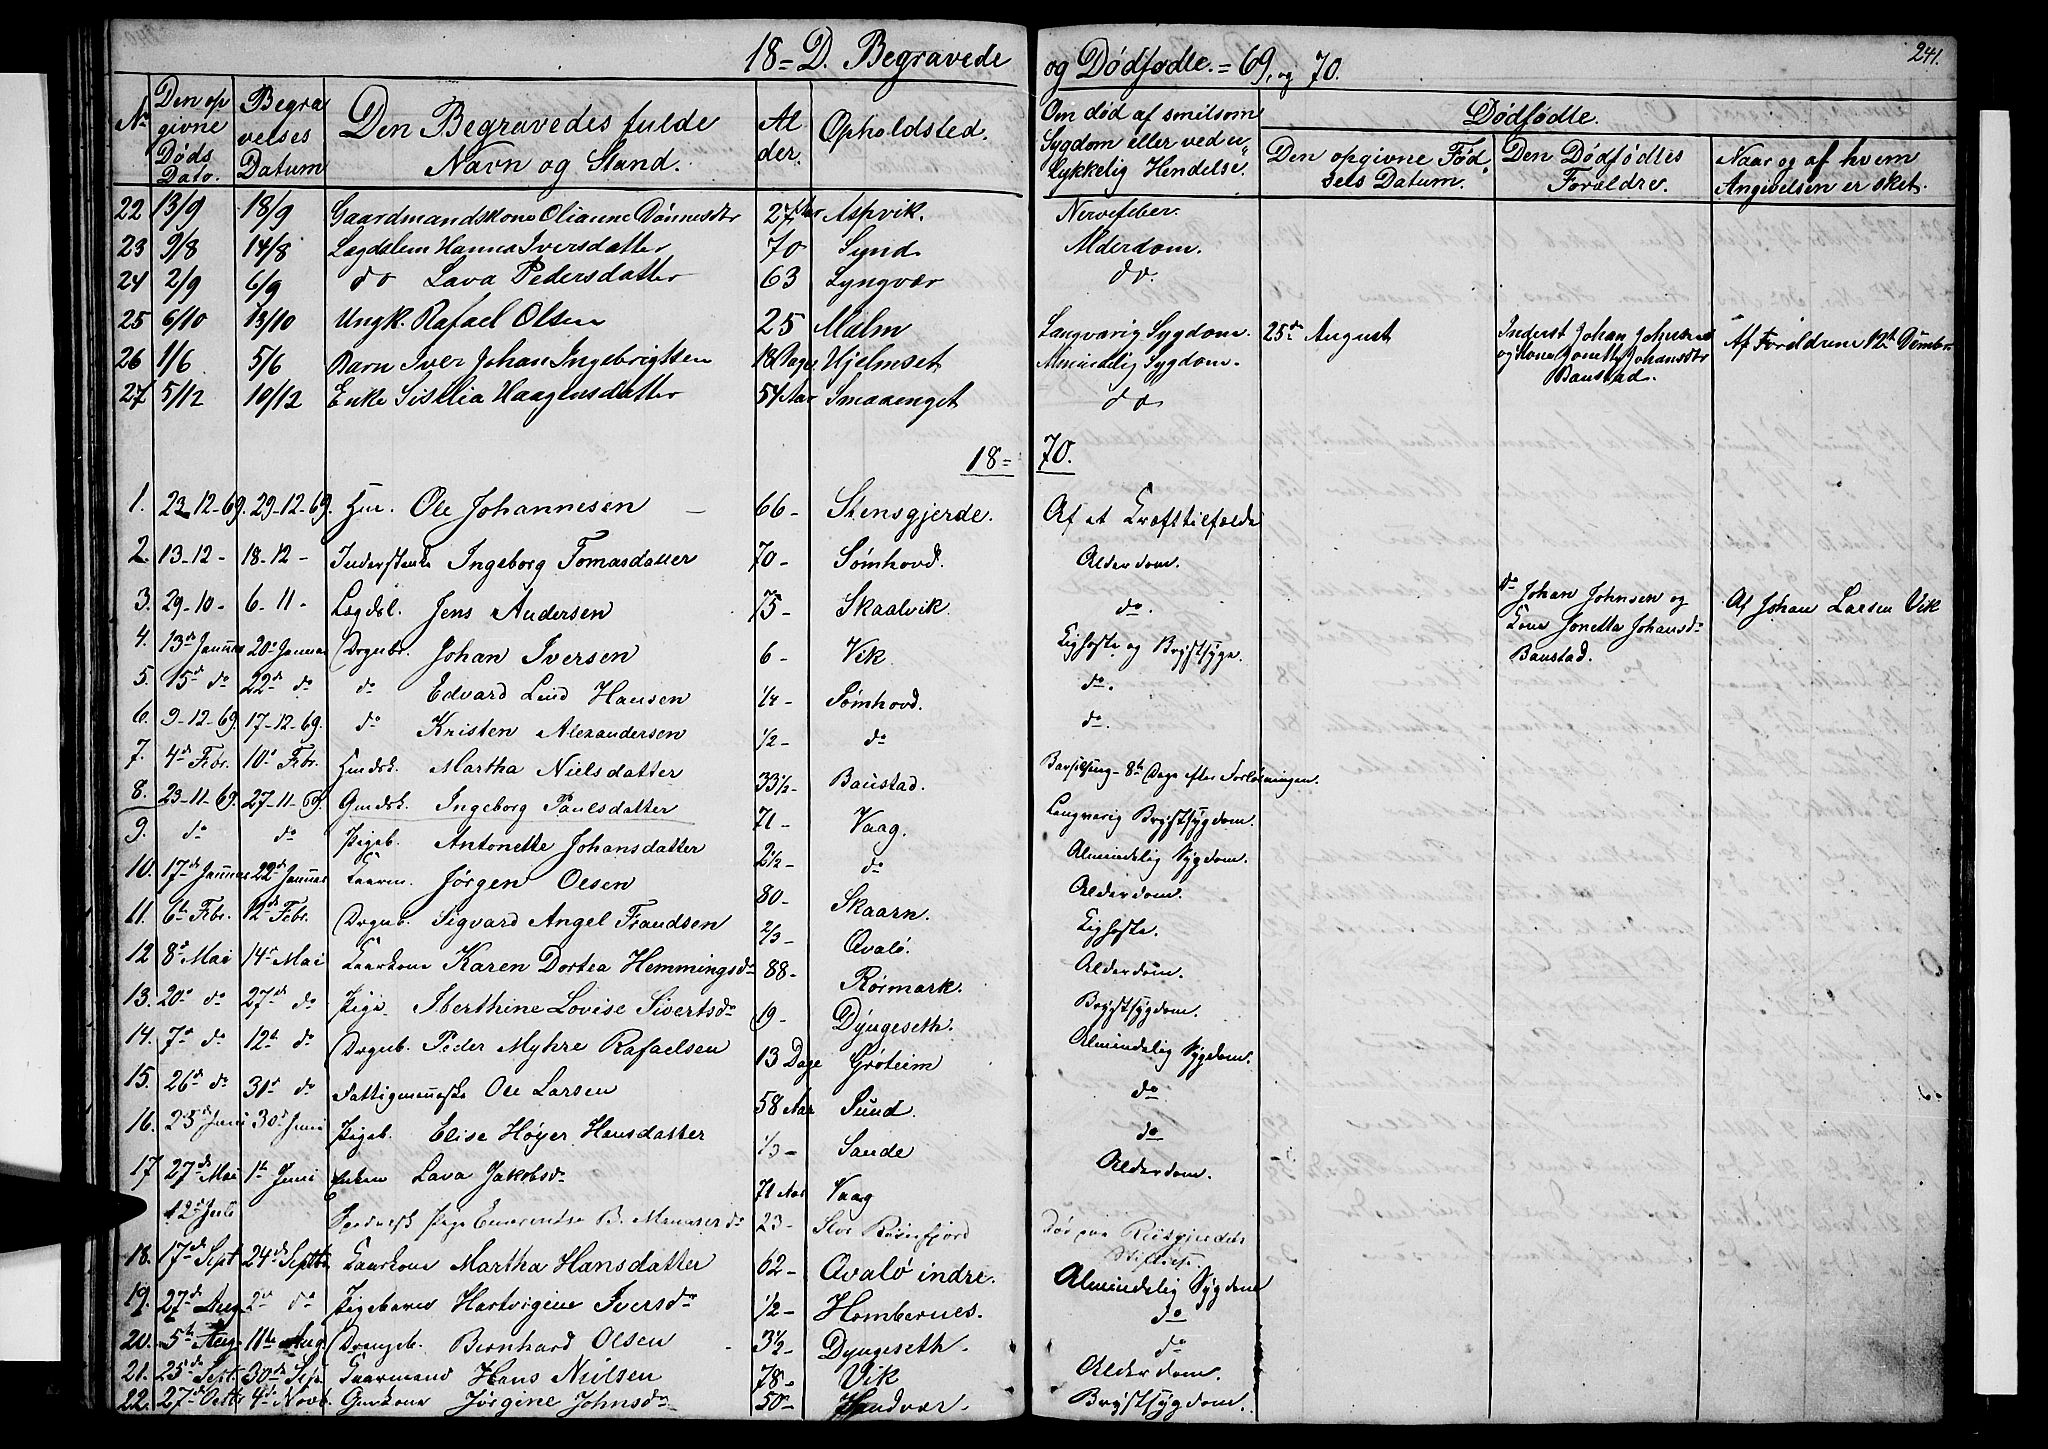 18 = D. Begravede og Dødfødte. = 69, og 70.
241.
No
Den opgivne Døds Dato.
Begravelses Datum
Den Begravedes fulde Navn og Stand.
Alder.
Opholdsted.
Om død af smitsom Sygdom eller ved ulykkelig Hendelse.
Dødfødte.
Den opgivne Fødsels Datum.
Den Dødfødtes Forældre.
Naar og af hvem Angivelsen er sket.
22 13/9 18/9 Gaardmandskone Olianne Dønnesdtr 27 Aar Aspvik. Nervefeber.
23 9/8 14/8 Lægdslem Hanna Iversdatter 70 Sund Alderdom.
24 2/9 6/9 do Lava Pedersdatter 63 Lyngvær do.
25 6/10 13/10 Ungk. Rafael Olsen 25 Malm Langvarig Sygdom. 25de August Inderst Johan Johnsen og Kone Jonetta Johansdtr Baustad. Af Forældrene 12te
26 1/6 5/6 Barn Iver Johan Ingebrigtsen 18 Dage Hjelmset Almindelig Sygdom.
27 5/12 10/12 Enke Sisilia Haagensdatter 54 Aar Smaaenget do
18 = 70.
1. 23-12-69. 29-12-69. Ole Johannesen 66 - Stensgjerde. Af et Krafttilfælde
2. 13-12- 18-12- Inderstenke Ingeborg Tomasdatter 70 - Sømhovd. Alderdom.
3. 29-10- 6-11- Lægdsl. Jens Andersen 75 - Skaalvik. do. do Johan Johnsen og Kone Jonetta Johansd. Baustad. Af Johan Larsen Vik
4. 13de Januar 20de Januar Drgnbr. Johan Iversen 6 - Vik. Kighoste og Brystsyge.
5. 15de do 22de do do Edvard Lind Hansen 1/4 - Sømhovd. do.
6. 9-12-69. 17-12-69. do Kristen Alexandersen 1/2 - do do.
7. 4de Febr. 10de Febr. Martha Nielsdatter 33 1/2 - Baustad. Barselseng - 8te Dage efter Forløsningen.
8. 23-11-69. 27-11-69. Gmdsk. Ingeborg Paulsdatter 71 - Vaag. Langvarig Brystsygdom.
9. do do Pigeb. Antonette Johansdatter 2 1/2 - do Almindelig Sygdom.
10. 17de Januar 22de Januar Kaarm. Jørgen Olsen 80 - Skaarn. Alderdom.
11. 6te Febr. 12de Febr. Drgnb. Sigvard Angel Frandsen 2/3 - Qvalø. Kighoste.
12 8de Mai 14de Mai Kaarkone Karen Dortea Hemmingsdr 88 - Rørmark. Alderdom.
13. 20de do 27de do Pige Iberthine Lovise Sivertsdr 19 - Dyngeseth. Brystsygdom.
14. 7de do 12te do Drgnb. Peder Myhre Rafaelsen 13 Dage Grøteim Almindelig Sygdom.
15. 26de do 31de do Fattigmenneske Ole Larsen 58 Aar Sund. do
16. 25de Juni 30de Juni Pigeb. Elise Høyer Hansdatter 1/3 - Sande. do
17 27de Mai 1te Juni Enken Lava Jakobsdr 71 Aar Vaag Alderdom.
12te Juli Pige B. 23 - Stor Død paa
18. 17de Sept 24de Septbr Kaarkone Martha Hansdatter 62 - Qvalø indre. Almindelig Sygdom
19. 27de Aug 2de do Pigebarn Hartvigine Iversdr 1/2 - Hombernes. do
20. 5te Aug. 11te Aug Drengeb. Bernhard Olsen 3 1/2 - Dyngeseth. do
21. 25de Sept. 30de Sep. Kaarmand Hans Nilsen 78 - Vik Alderdom.
22. 27de Octbr 4de Novb. Gmkone Jørgine Johnsdr 50 - Handvær. Brystsygdom.